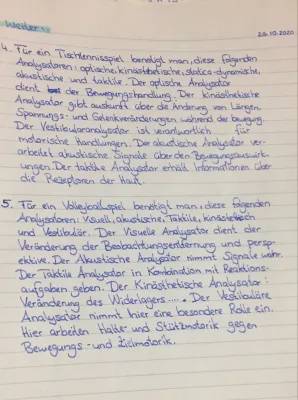 Weiter:
26.10.2020
4. Für ein Tischtennisspiel benötigt man, diese folgenden
Analysatoren: optische, kinästhetische, statico-dynamische,
akustische und taktile. Der optische Analysator
dient der Bewegungshandlung. Der kinästhetische
Analysator gibt auskunft über die Änderung von Längen,
Spannungs- und Gelenkveränderungen während der bewegung.
Der Vestibularanalysator ist verantwortlich für
motorische Handlungen. Der akustische Analysator ver-
arbeitet akustische Signale über den Bewegungsauswirk-
ungen. Der taktile Analysator erhält Informationen über
die Rezeptoren der Haut.
5. Für ein Volleyballspiel benötigt man, diese folgenden
Analysatoren: Visuell, akustische, Taktile, kinästhetisch
und Vestibulär. Der Visuelle Analysator dient der
Veränderung der Beobachtungsentfernung und persp-
ektive. Der Akustische Analysator nimmt Signale wahr.
Der Taktile Analysator in Kombination mit Reaktions-
aufgaben geben. Der Kinästhetische Analysator:
Veränderung des Widerlagers.... Der Vestibuläre
Analysator nimmt hier eine besondere Rolle ein.
Hier arbeiten Halte- und Stützmotorik gegen
Bewegungs- und Zielmotorik.